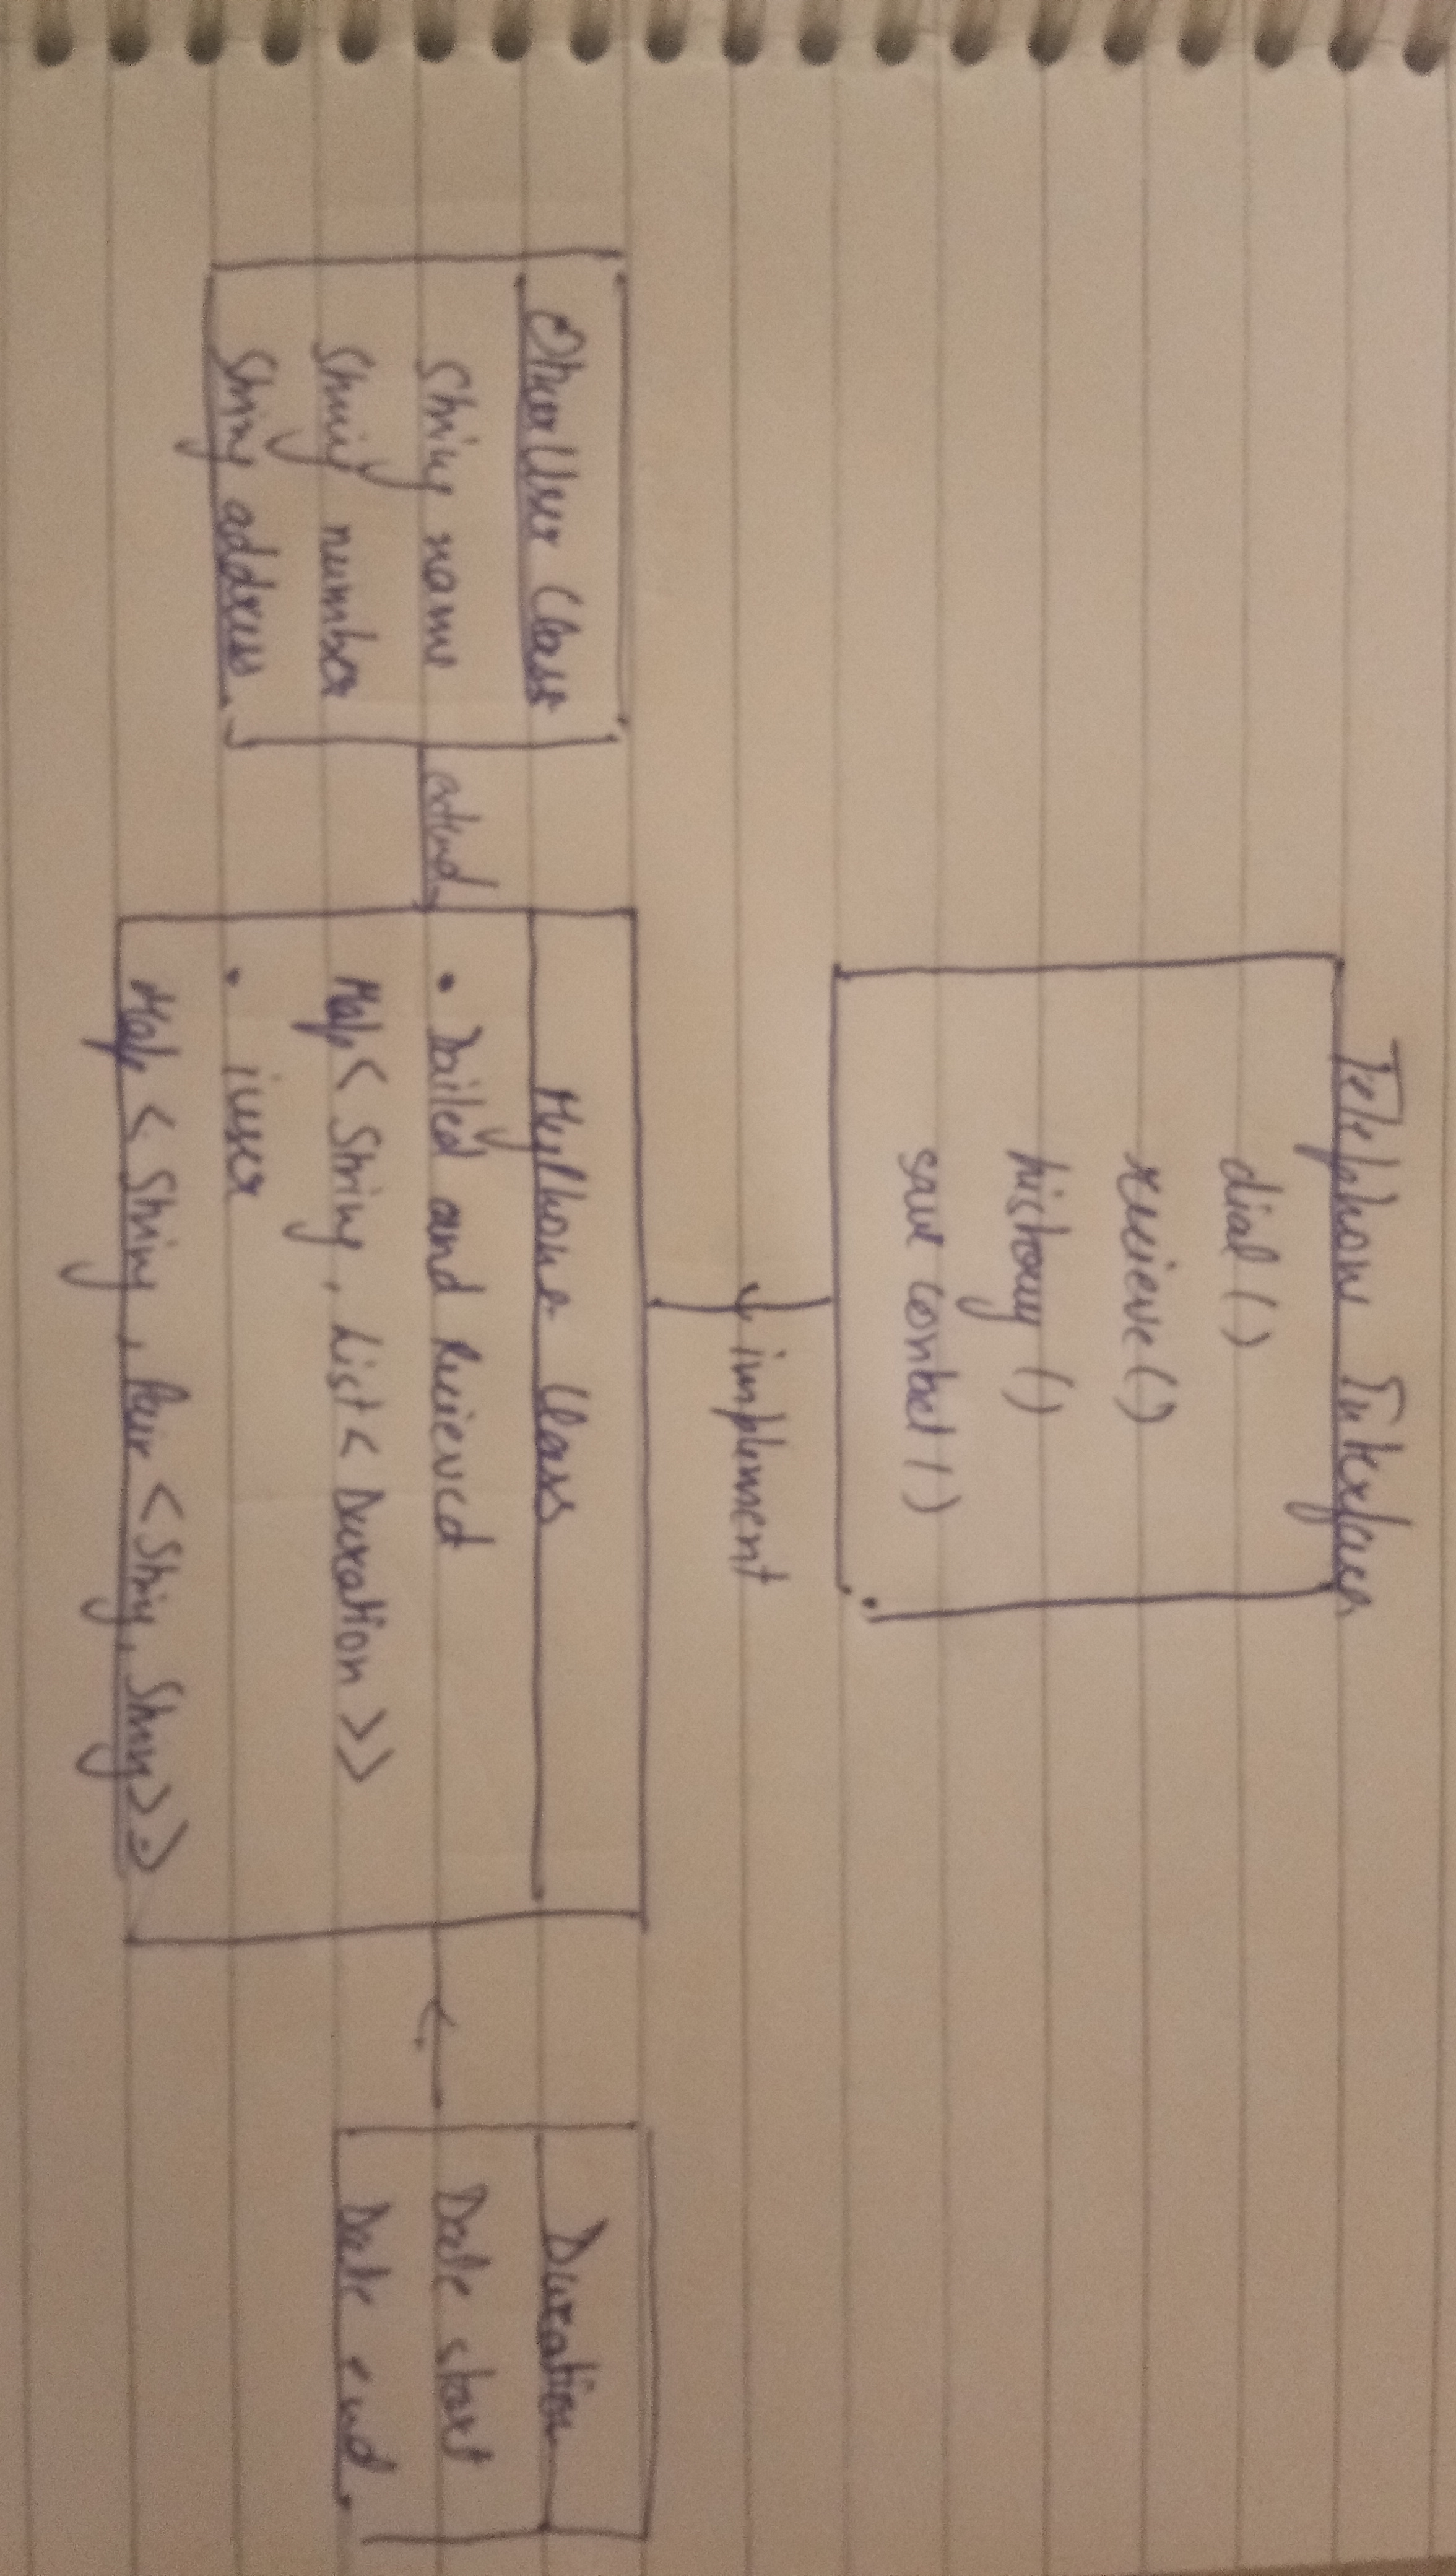 Telephone Interface
dial ()
recieve ()
history ()
save contact ()
implement
OtherUser Class
String name
String number
String address
extend
MyPhone Class
• Dailed and Recieved
Map < String , List < Duration >>
• user
Map < String , Pair < String, String >>
Duration
Date start
Date end